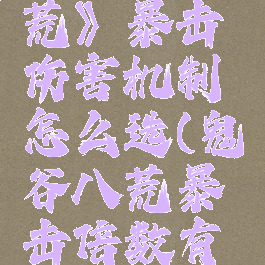 荒》暴击
伤害机制
怎么造(鬼
谷八荒暴
击倍数有